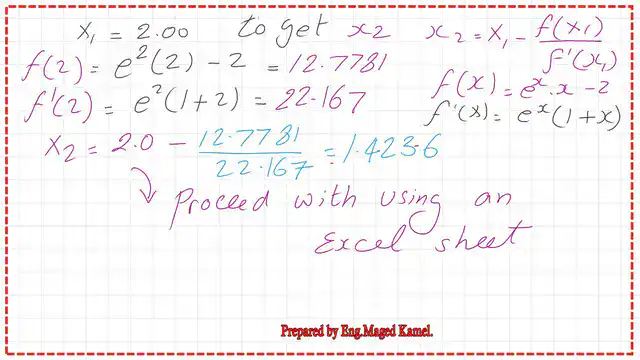 x₁ = 2.00 to get x2 x₂ = x₁ - f(x₁)/f'(x₁)
f(2) = e²(2) - 2 = 12.7781
f(x) = eˣ.x - 2
f'(2) = e²(1+2) = 22.167
f'(x) = eˣ(1+x)
x₂ = 2.0 - 12.7781/22.167 = 1.4236
Proceed with using an
Excel sheet
Prepared by Eng.Maged Kamel.